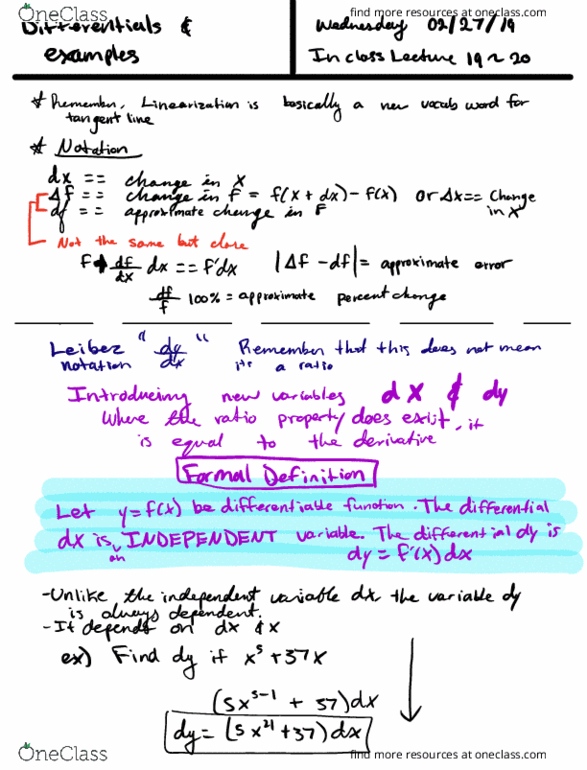 OneClass
find more resources at oneclass.com
Differentials &
examples
Wednesday 02/27/19
In class Lecture 19 ~ 20
* Remember, Linearization is basically a new vocab word for
tangent line
* Notation
dx == change in x
Δf == change in f = f(x + dx) - f(x) or Δx == change
in x
df == approximate change in F
Not the same but close
df/dx dx == f'dx |Δf - df| = approximate error
df/f 100% = approximate percent change
Leibez " dy/dx " Remember that this does not mean
notation its a ratio
Introducing new variables dx & dy
Where the ratio property does exist, it
is equal to the derivative
Formal Definition
Let y = f(x) be differentiable function. The differential
dx is an INDEPENDENT variable. The differential dy is
dy = f'(x) dx
-Unlike the independent variable dx, the variable dy
is always dependent.
-It depends on dx & x
ex) Find dy if x^5 + 37x
(5x^5-1 + 37)dx
dy = (5x^4 + 37) dx
OneClass
find more resources at oneclass.com